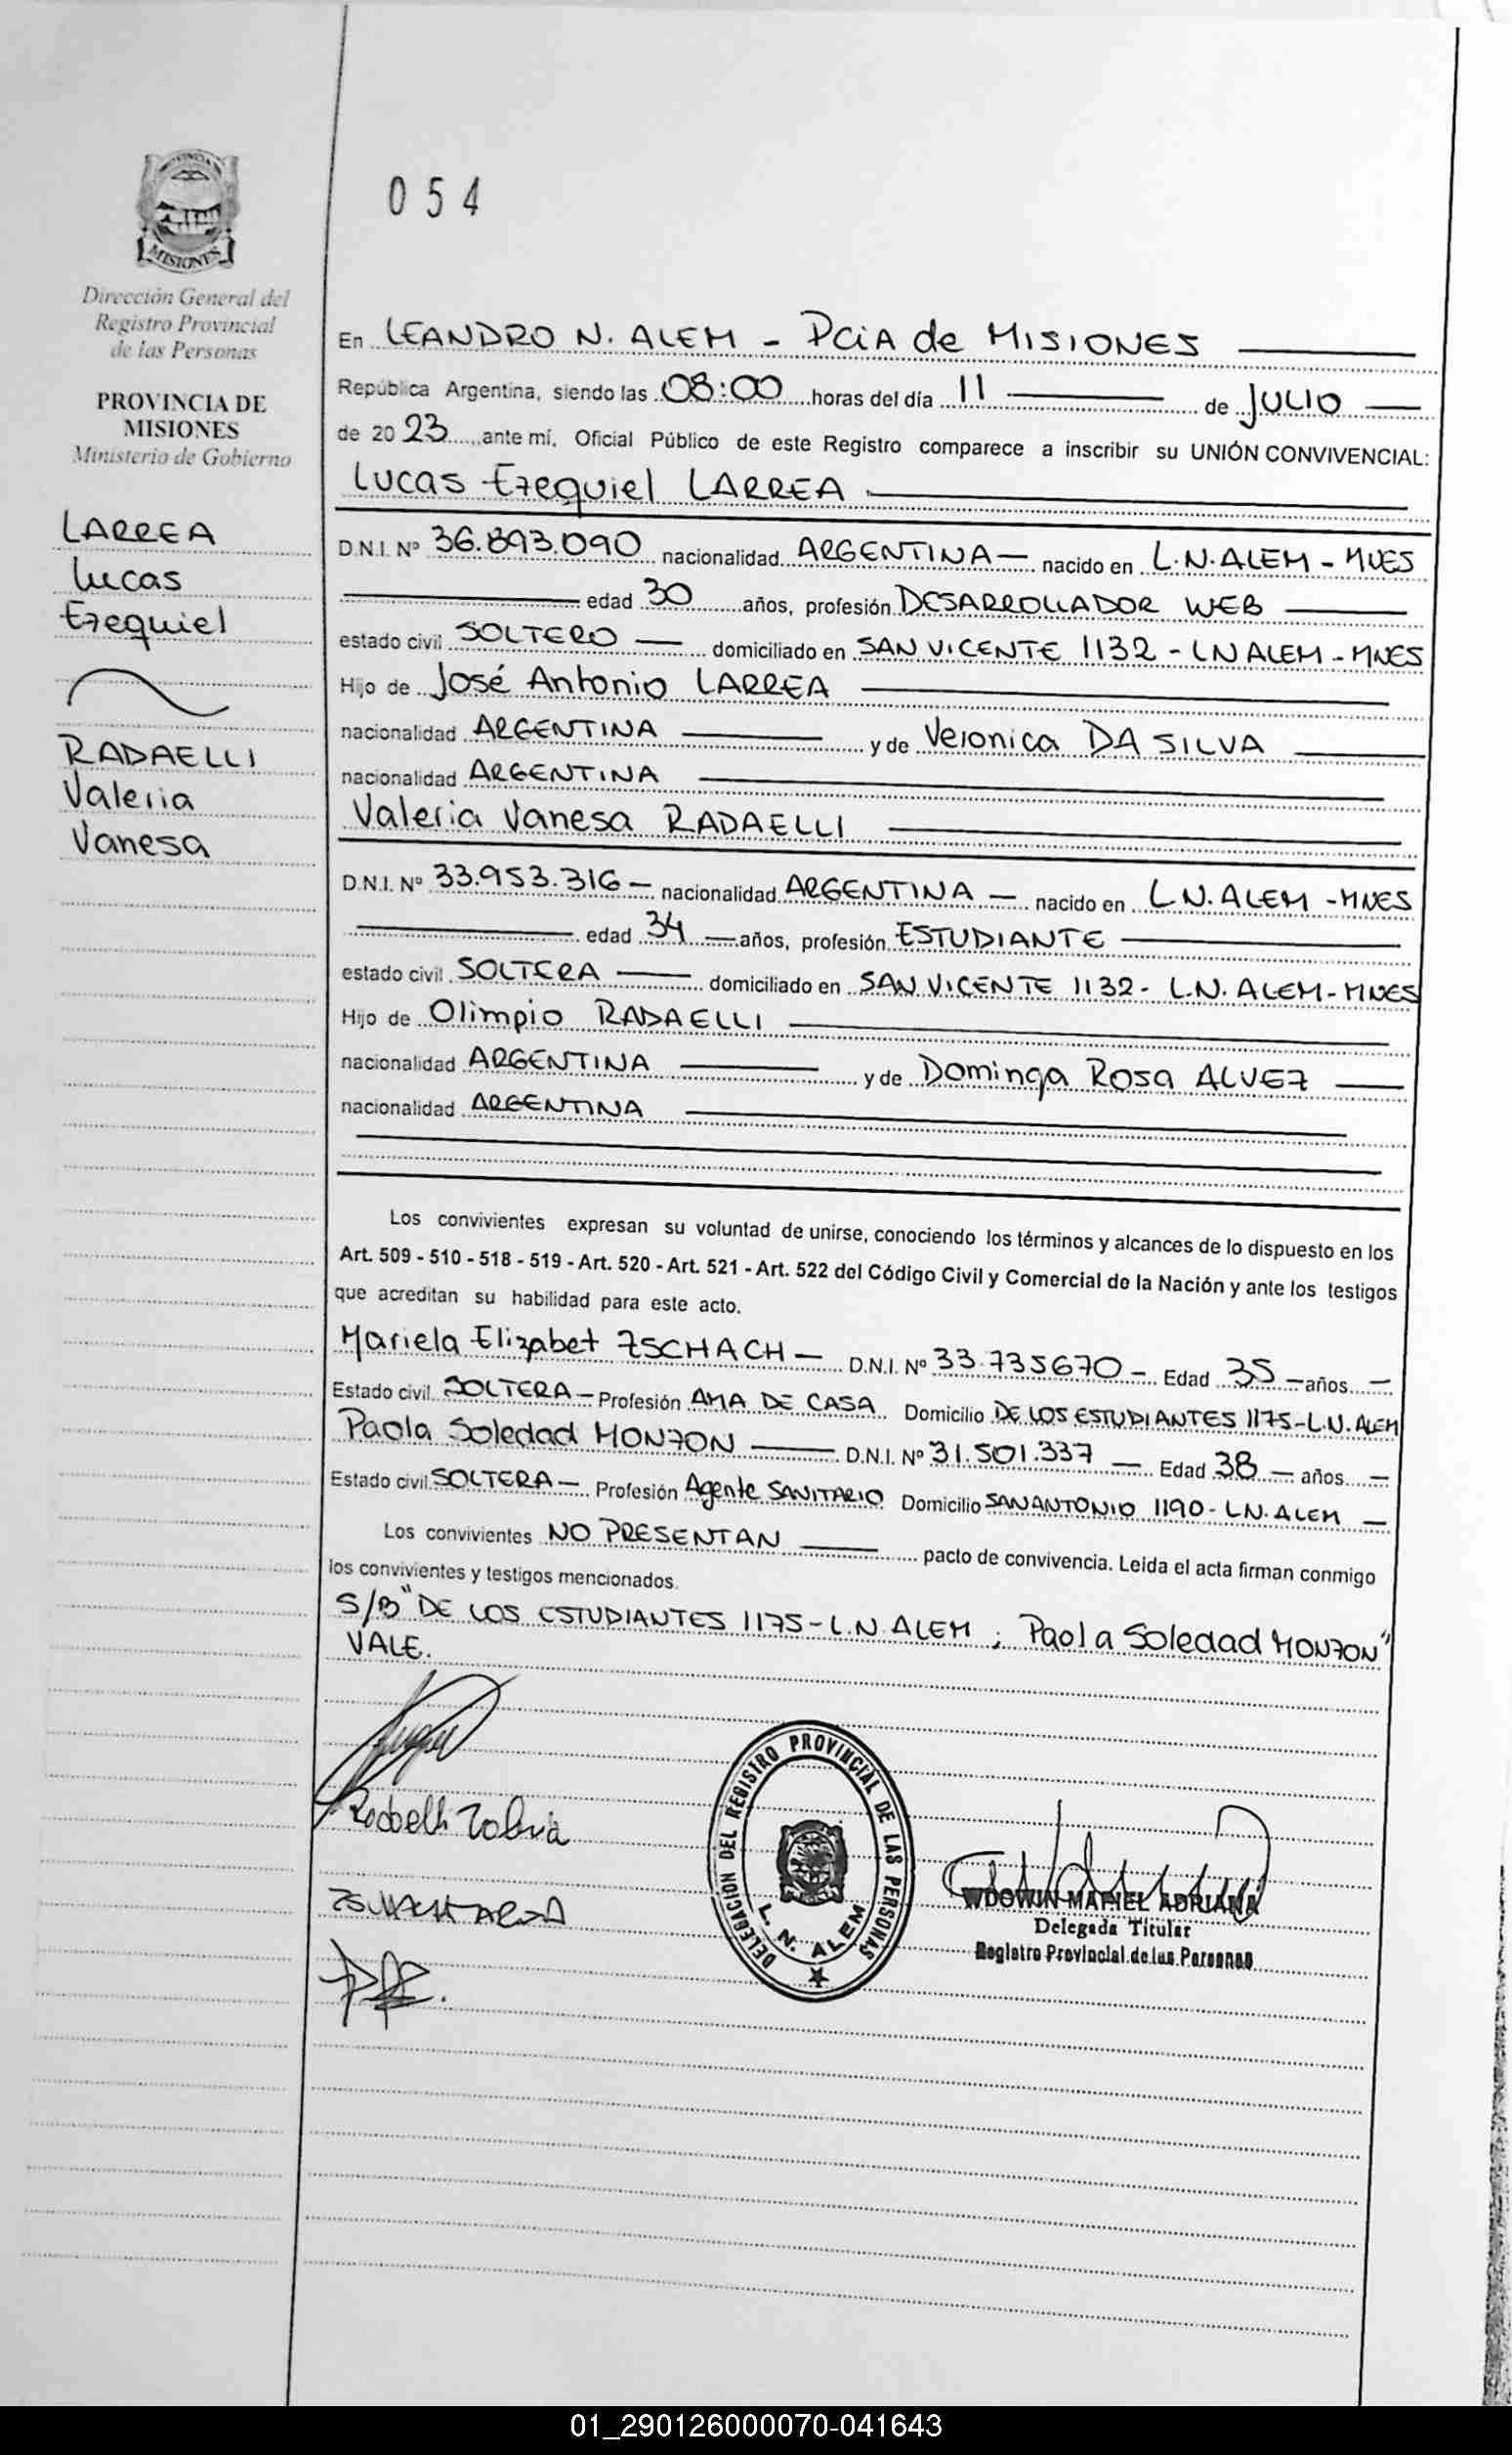 054
PROVINCIA DE
MISIONES
Dirección General del
Registro Provincial
de las Personas
PROVINCIA DE
MISIONES
Ministerio de Gobierno
LARREA
Lucas
Ezequiel
RADAELLI
Valeria
Vanesa
En LEANDRO N. ALEM - PCiA de MISIONES
República Argentina, siendo las 08:00 horas del día 11 de JULIO
de 2023 ante mí, Oficial Público de este Registro comparece a inscribir su UNIÓN CONVIVENCIAL:
Lucas Ezequiel LARREA
D.N.I. Nº 36.893.090 nacionalidad ARGENTINA nacido en L.N.ALEM - MNES
edad 30 años, profesión DESARROLLADOR WEB
estado civil SOLTERO domiciliado en SAN VICENTE 1132 - LN ALEM - MNES
Hijo de José Antonio LARREA
nacionalidad ARGENTINA y de Veronica DA SILVA
nacionalidad ARGENTINA
Valeria Vanesa RADAELLI
D.N.I. Nº 33.953.316 - nacionalidad ARGENTINA - nacido en L.N.ALEM - MNES
edad 34 años, profesión ESTUDIANTE
estado civil SOLTERA domiciliado en SAN VICENTE 1132 - L.N. ALEM - MNES
Hijo de Olimpio RADAELLI
nacionalidad ARGENTINA y de Dominga Rosa ALVEZ
nacionalidad ARGENTINA
Los convivientes expresan su voluntad de unirse, conociendo los términos y alcances de lo dispuesto en los
Art. 509 - 510 - 518 - 519 - Art. 520 - Art. 521 - Art. 522 del Código Civil y Comercial de la Nación y ante los testigos
que acreditan su habilidad para este acto.
Mariela Elizabet ZSCHACH - D.N.I. Nº 33.735670 - Edad 35 - años
Estado civil SOLTERA - Profesión AMA DE CASA Domicilio DE LOS ESTUDIANTES 1175 - L.N. ALEM
Paola Soledad MONZON D.N.I. Nº 31.501.337 - Edad 38 - años
Estado civil SOLTERA - Profesión Agente SANITARIO Domicilio SAN ANTONIO 1190 - LN. ALEM
Los convivientes NO PRESENTAN pacto de convivencia. Leída el acta firman conmigo
los convivientes y testigos mencionados.
S/B "DE LOS ESTUDIANTES 1175 - L.N ALEM ; Paola Soledad MONZON"
VALE.
DELEGACION DEL REGISTRO PROVINCIAL DE LAS PERSONAS
L. N. ALEM
WDOWIN MARIEL ADRIANA
Delegada Titular
Registro Provincial de las Personas
01_290126000070-041643